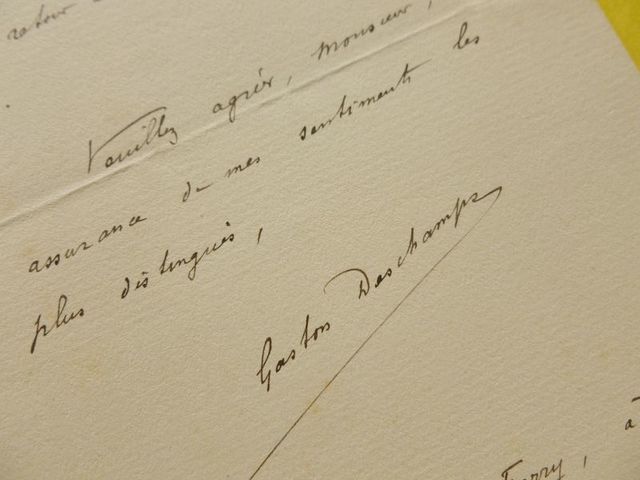 retour
Veuillez agréer, Monsieur,
assurance de mes sentiments les
plus distingués,
Gaston Deschamps
Ferry, à